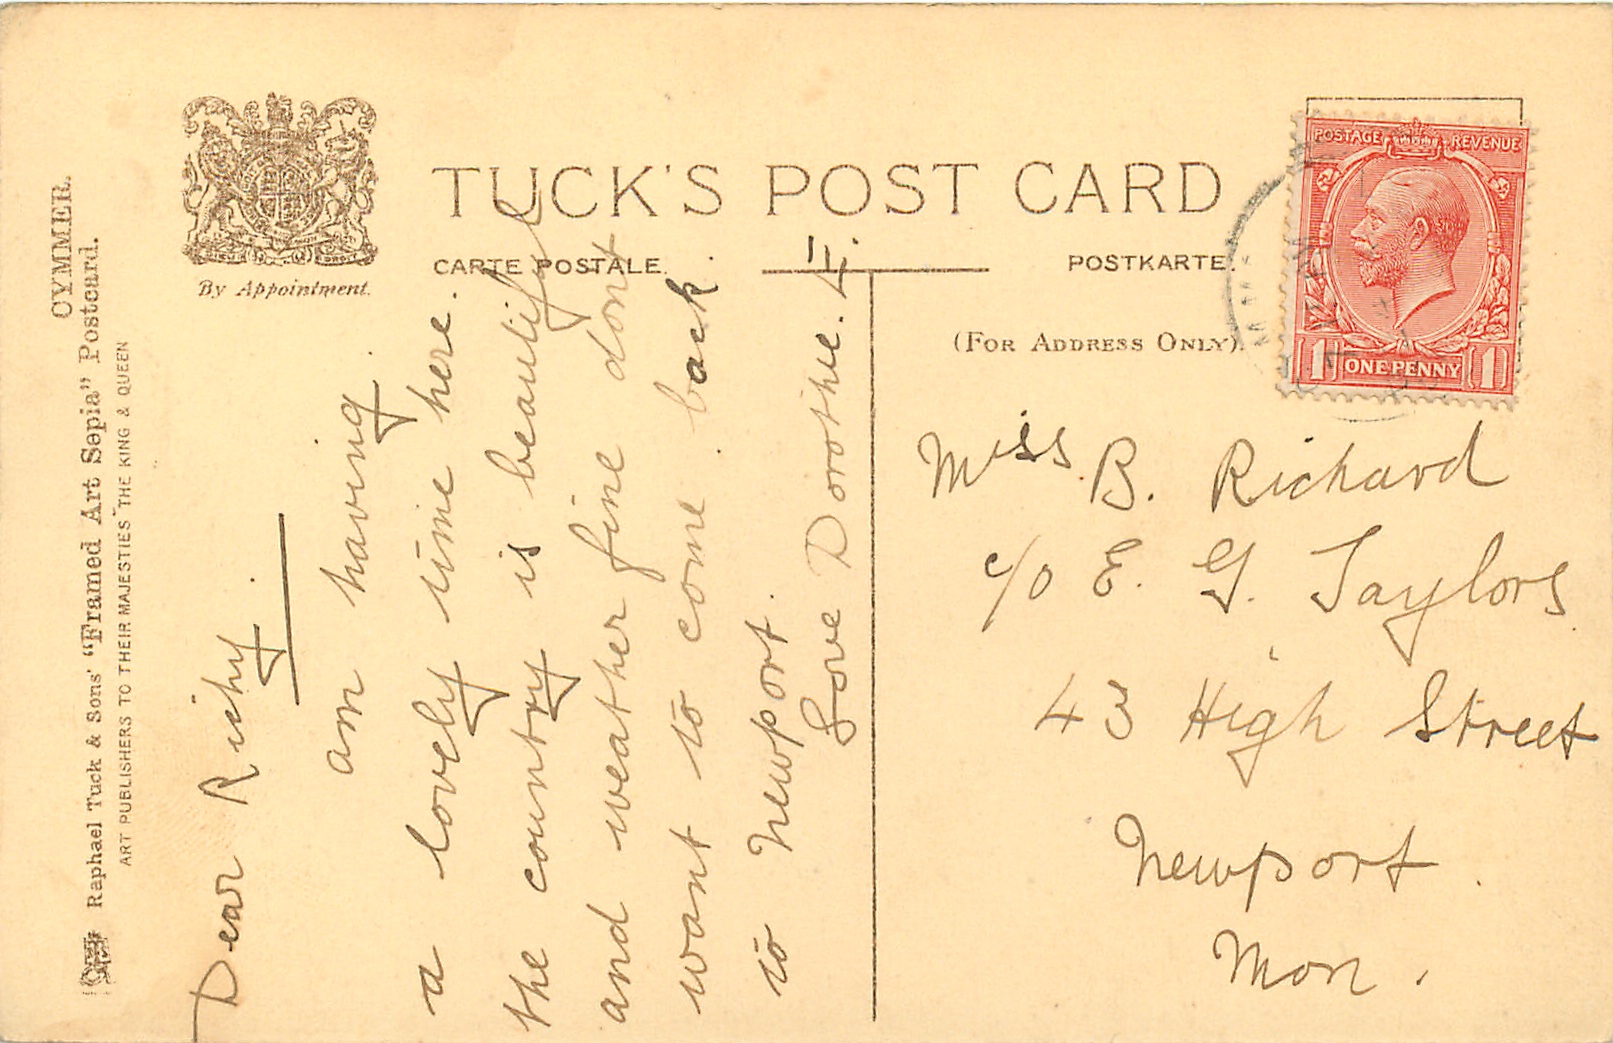 CYMMER.
Raphael Tuck & Sons' "Framed Art Sepia" Postcard.
ART PUBLISHERS TO THEIR MAJESTIES THE KING & QUEEN
By Appointment.
TUCK'S POST CARD
CARTE POSTALE.
POSTKARTE.
(FOR ADDRESS ONLY).
POSTAGE REVENUE
1 ONE PENNY 1
Dear Richy.
am having
a lovely time here.
the country is beautiful
and weather fine dont
want to come back.
to Newport.
Love Dorothie.
Miss B. Richard
c/o E. G. Taylors
43 High Street
Newport.
Mon.